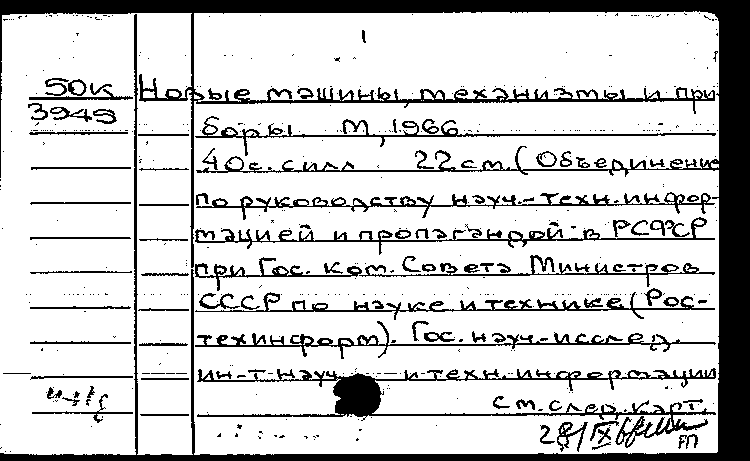 1
50к Новые машины, механизмы и при-
3949 боры. М, 1966
40с. с илл 22 см. (Объединение
по руководству науч.-техн. инфор-
мацией и пропагандой в РСФСР
при Гос. ком. Совета Министров
СССР по науке и технике (Рос-
техинформ). Гос. науч.-исслед.
ин-т науч. и техн. информации
см. след. карт.
28/IX
РП